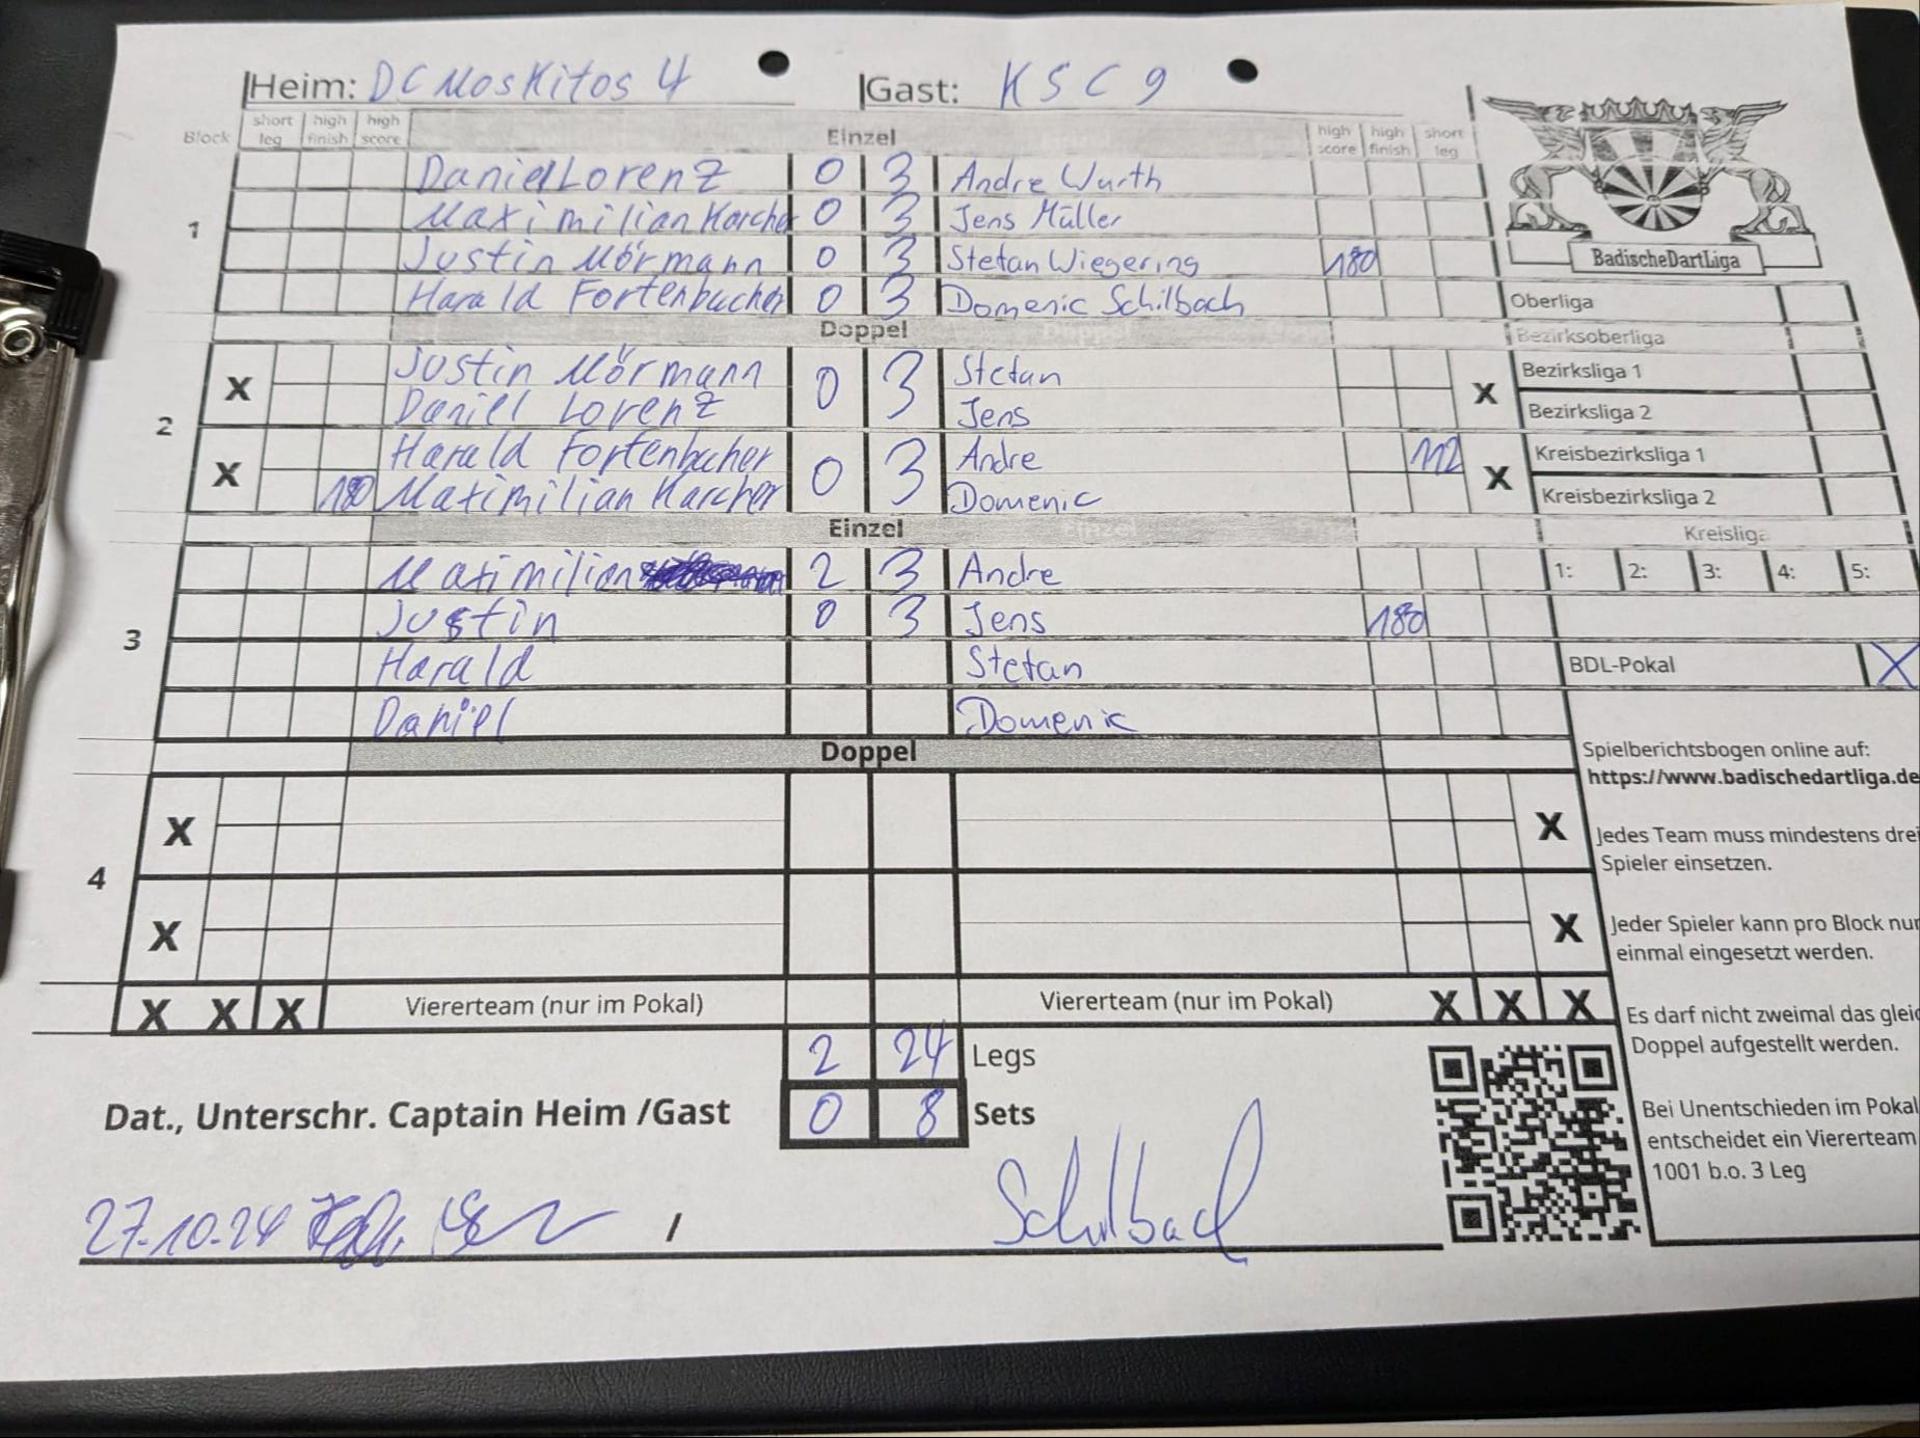 Heim: DC Moskitos 4 Gast: KSC 9
Block short leg high finish high score Einzel high score high finish short leg
1
Daniel Lorenz 0 3 Andre Wurth
Maximilian Karcher 0 3 Jens Müller
Justin Mörmann 0 3 Stefan Wiegering 180
Harald Fortenbacher 0 3 Domenic Schilbach
BadischeDartLiga
Oberliga
Doppel
Bezirksoberliga
2
X Justin Mörmann 0 3 Stefan X
Daniel Lorenz Jens
Bezirksliga 1
Bezirksliga 2
X Harald Fortenbacher 0 3 Andre 112 X
180 Maximilian Karcher Domenic
Kreisbezirksliga 1
Kreisbezirksliga 2
Einzel
Kreisliga
1: 2: 3: 4: 5:
3
Maximilian 2 3 Andre
Justin 0 3 Jens 180
Harald Stefan
Daniel Domenic
BDL-Pokal X
Doppel
4
X X
X X
X X X Viererteam (nur im Pokal) Viererteam (nur im Pokal) X X X
2 24 Legs
0 8 Sets
Dat., Unterschr. Captain Heim /Gast
27.10.24 / Schilbach
Spielberichtsbogen online auf:
https://www.badischedartliga.de
Jedes Team muss mindestens drei
Spieler einsetzen.
Jeder Spieler kann pro Block nur
einmal eingesetzt werden.
Es darf nicht zweimal das gleic
Doppel aufgestellt werden.
Bei Unentschieden im Pokal
entscheidet ein Viererteam
1001 b.o. 3 Leg